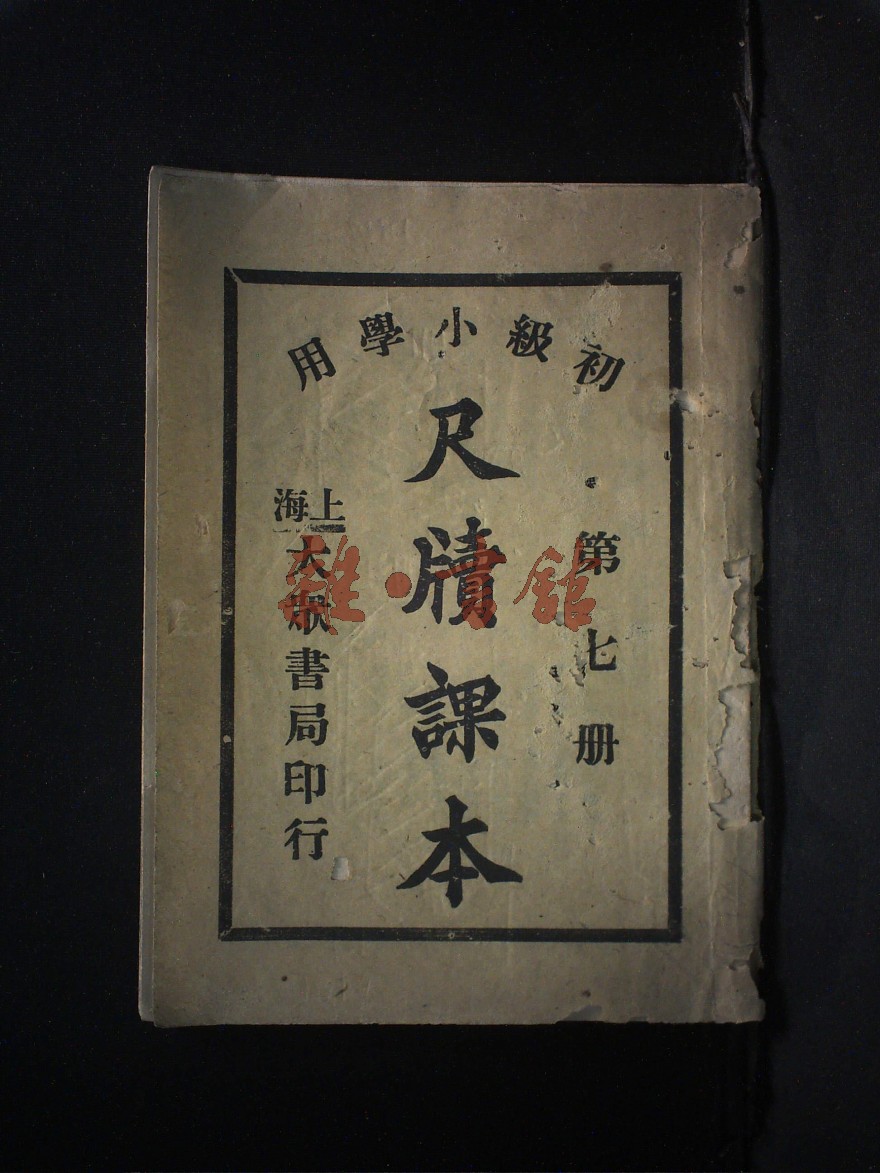 初級小學用
第七册
尺牘課本
上海
大眾書局印行
雜·書館